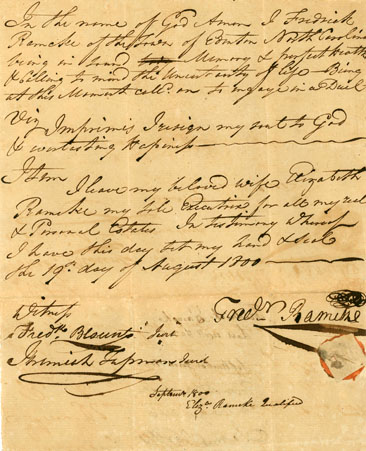 In the name of God Amen I Fredrick
Ramcke of the Town of Edenton North Carolina
being in Sound Memory & perfect health
& calling to mind the Uncertainty of life – Being
at this Moment call'd on to Engage in a Duel
Viz Imprimis I resign my soul to God
& everlasting Happiness
Item
I leave my beloved wife Elizabeth
Ramcke my Sole Executrix for all my real
& Personal Estates. In testimony whereof
I have this day set my hand & Seal
the 19th day of August 1800
Witness
Fredk Ramcke
Fredk Blount Jurt
Jeremiah
Septemr 1800
Elizth Ramcke Qualified